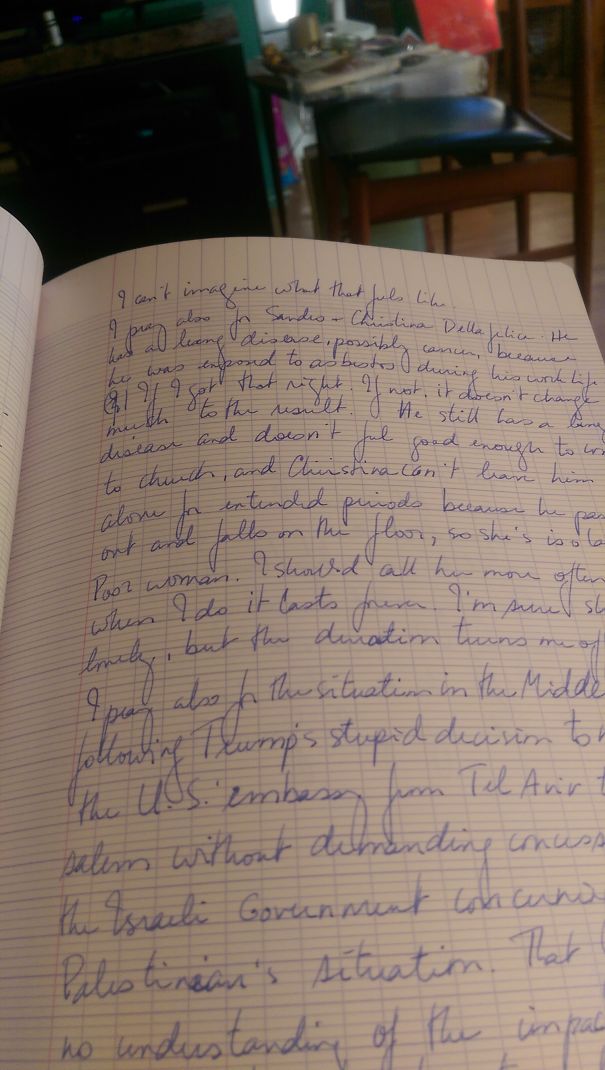 I can't imagine what that feels like.
I pray also for Sandro + Christina Dellafelice. He
has a lung disease, possibly cancer, because
he was exposed to asbestos during his work life
if I got that right. If not, it doesn't change
much to the result. He still has a lung
disease and doesn't feel good enough to
to church, and Christina can't leave him
alone for extended periods because he
out and falls on the floor, so she's
Poor woman. I should call her more often
when I do it lasts forever. I'm sure
lonely, but the duration turns me of
I pray also for the situation in the Middle
following Trump's stupid decision to
the U.S. embassy from Tel Aviv t
salem without demanding
the Israeli Government
Palestinian's situation. That
no understanding of the